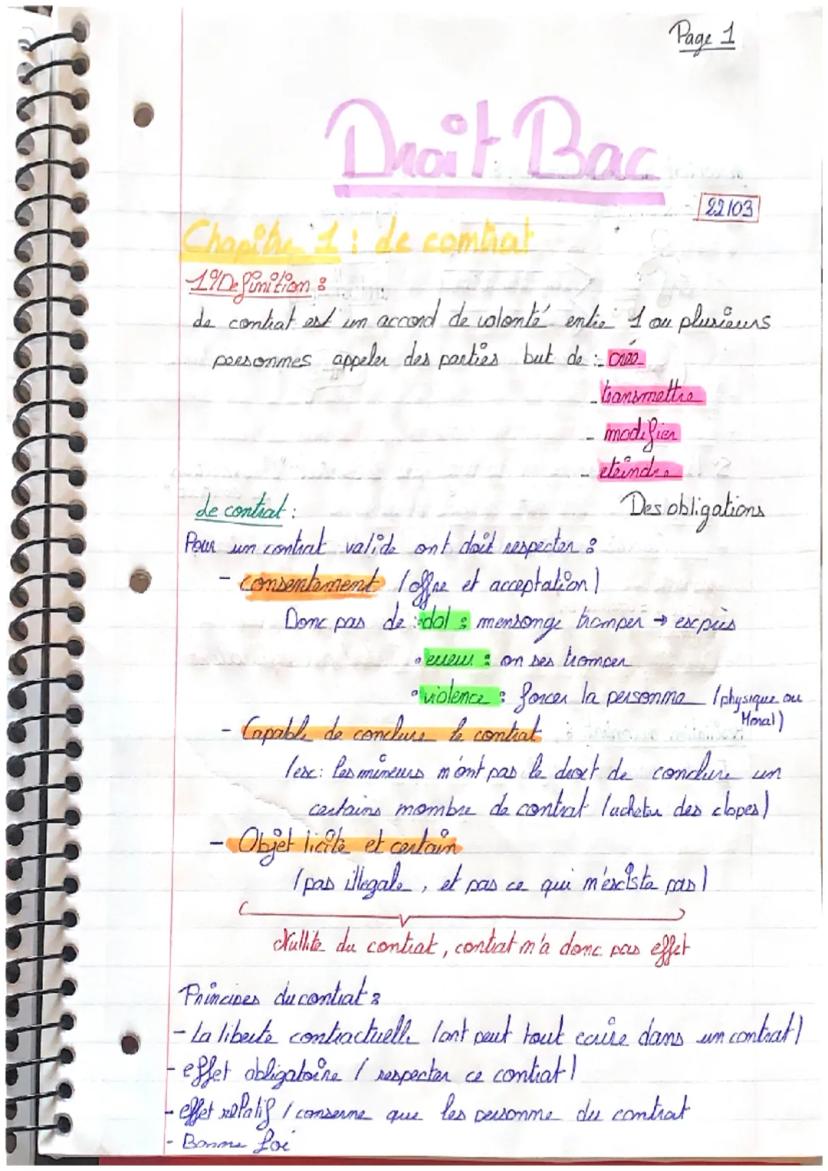 Page 1
Droit Bac
22/03
Chapitre 1 : Le contrat
1°/Definition :
Le contrat est un accord de volonté entre 1 ou plusieurs
personnes appeler des parties but de : - créé
- transmettre
- modifier
- eteindre
Des obligations
Le contrat :
Pour un contrat valide ont doit respecter :
- consentement (offre et acceptation)
Donc pas de : • dol : mensonge tromper → exprès
• erreur : on ses tromper
• violence : forcer la personne (physique ou
Moral)
- Capable de conclure le contrat
(ex : les mineurs n'ont pas le droit de conclure un
certains nombre de contrat (acheter des clopes)
- Objet licite et certain
(pas illegale, et pas ce qui n'existe pas)
Nullité du contrat, contrat n'a donc pas effet
Principes du contrat :
- La liberte contractuelle (ont peut tout ecrire dans un contrat)
- effet obligatoire (respecter ce contrat)
- effet relatif (conserne que les personne du contrat
- Bonne foi